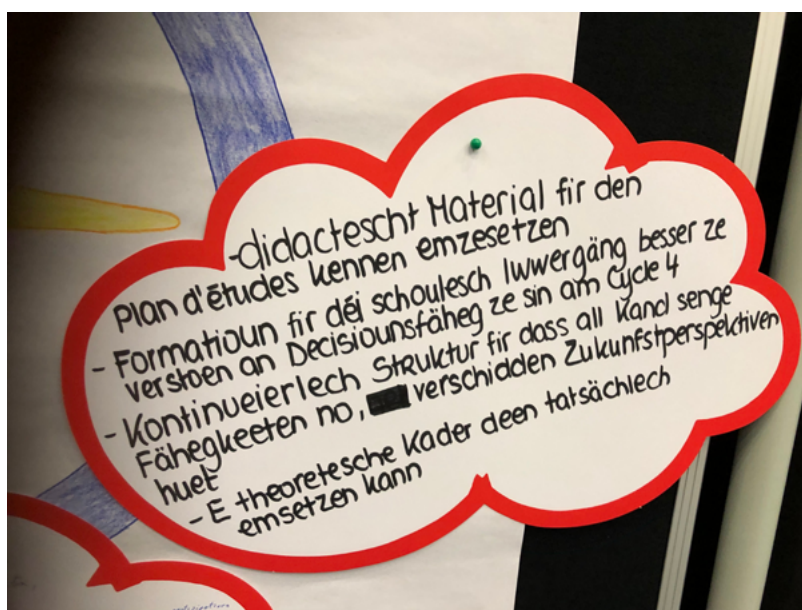 -didactescht Material fir den
Plan d'études kennen emzesetzen
- Formatioun fir déi schoulesch Iwwergäng besser ze
verstoen an Decisiounsfäheg ze sin am Cycle 4
- Kontinueierlech Struktur fir dass all Kand senge
Fähegkeeten no, verschidden Zukunfstperspektiven
huet
- E theoretesche Kader deen tatsächlech
emsetzen kann